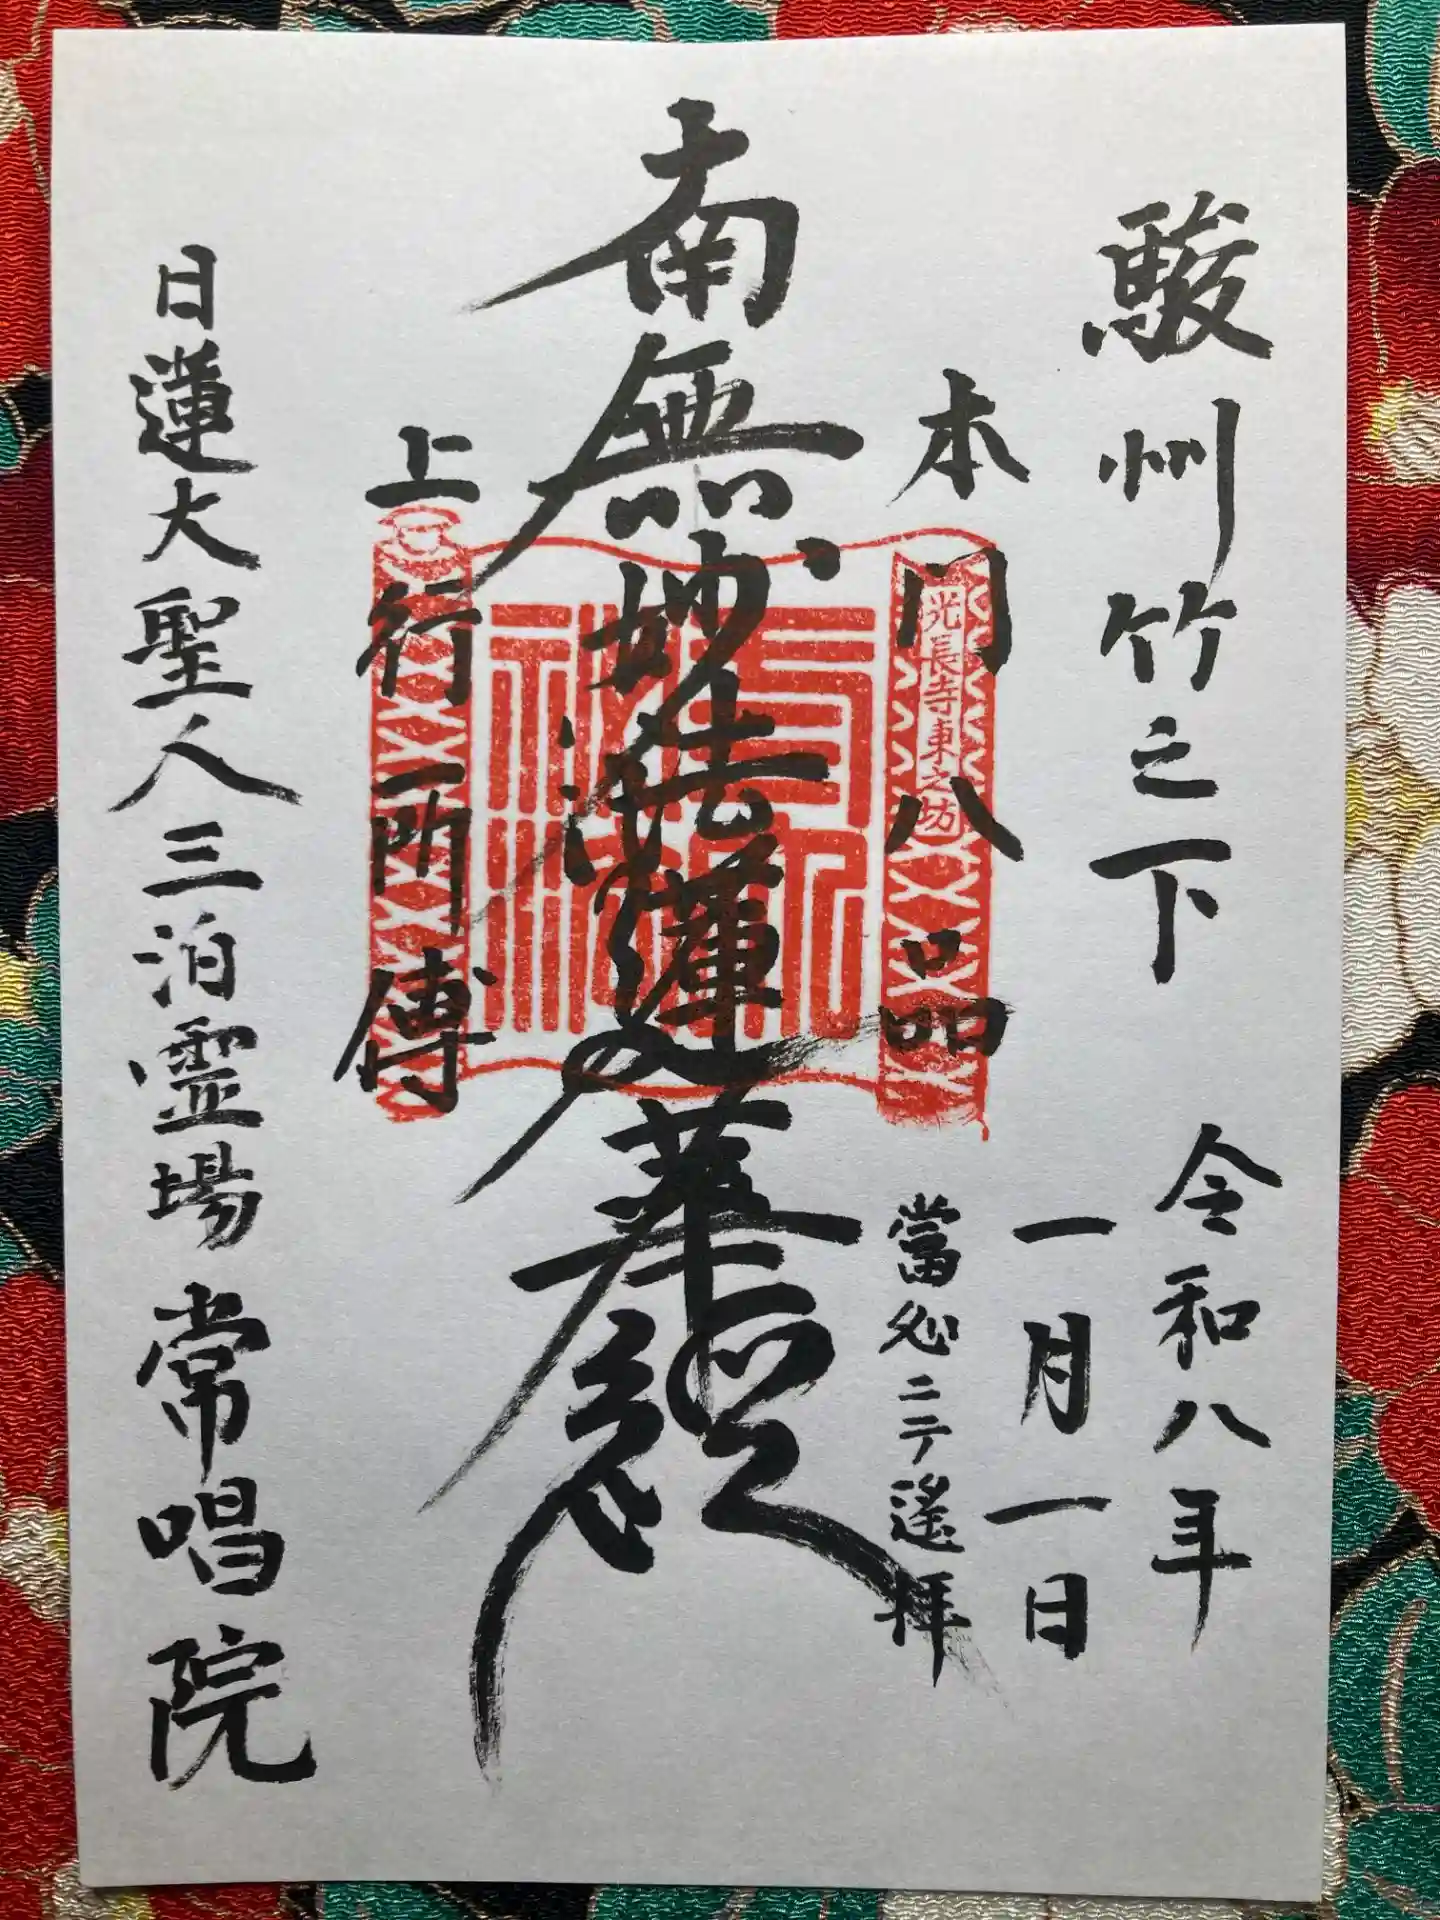 駿州竹之下
令和八年
一月一日
本門八品
光長寺東之坊
當処ニテ遙拝
南無妙法蓮華経
上行所傳
日蓮大聖人三泊霊場 常唱院